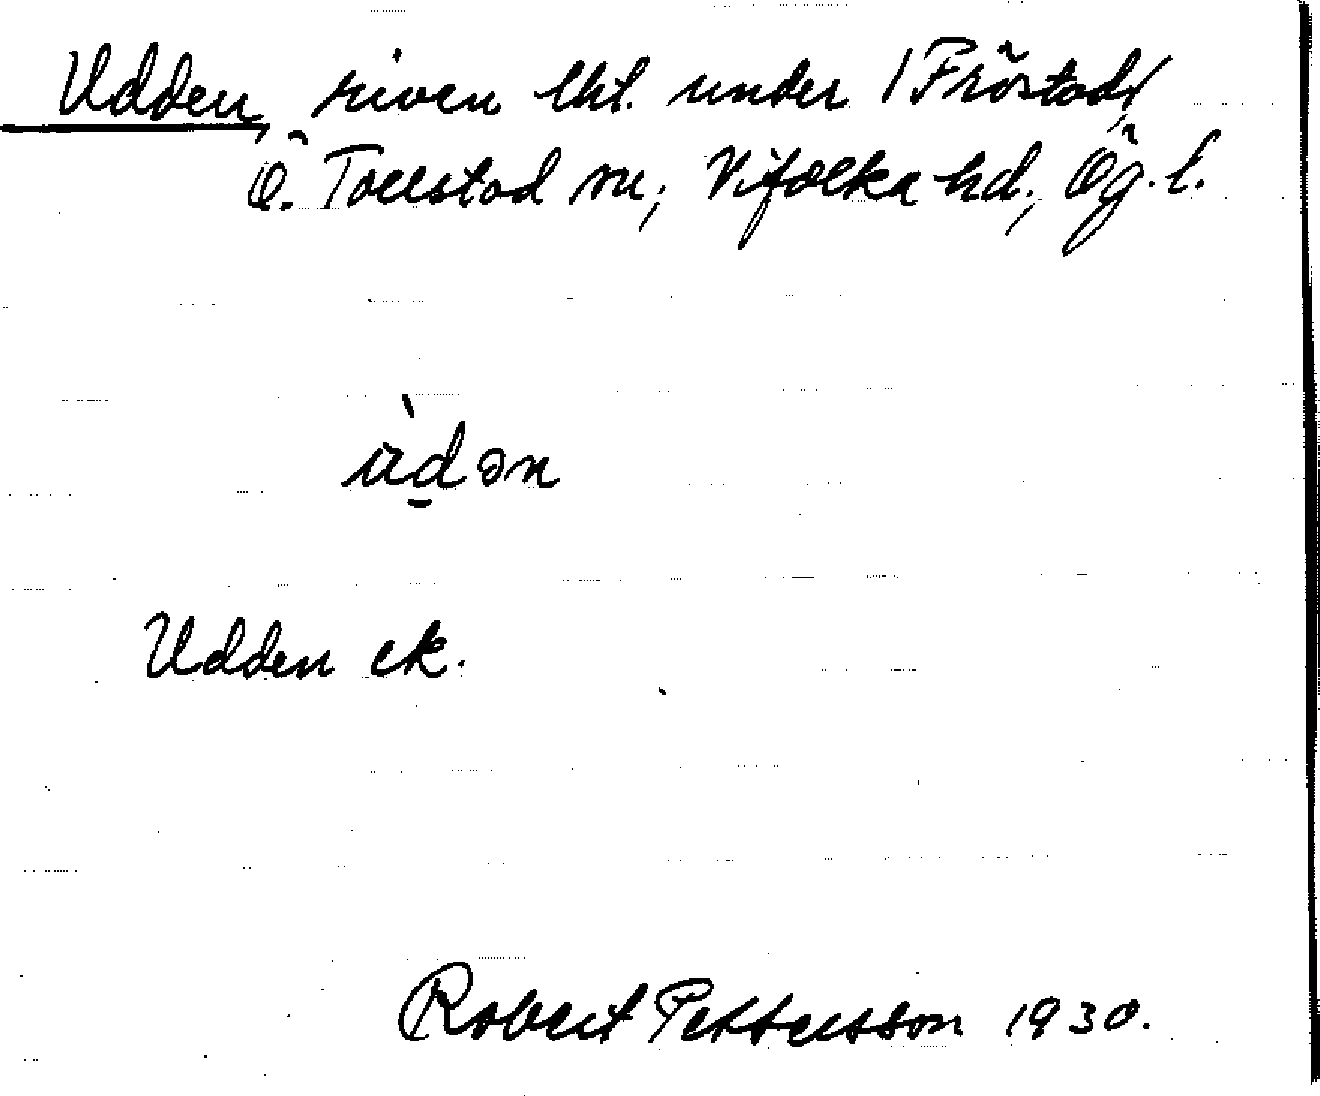 Udden, riven lht. under /Fröstad/,
Ö. Tollstad sn, Vifolka hd, Ög. l.
ùd̲ən
Udden ek.
Robert Pettersson 1930.